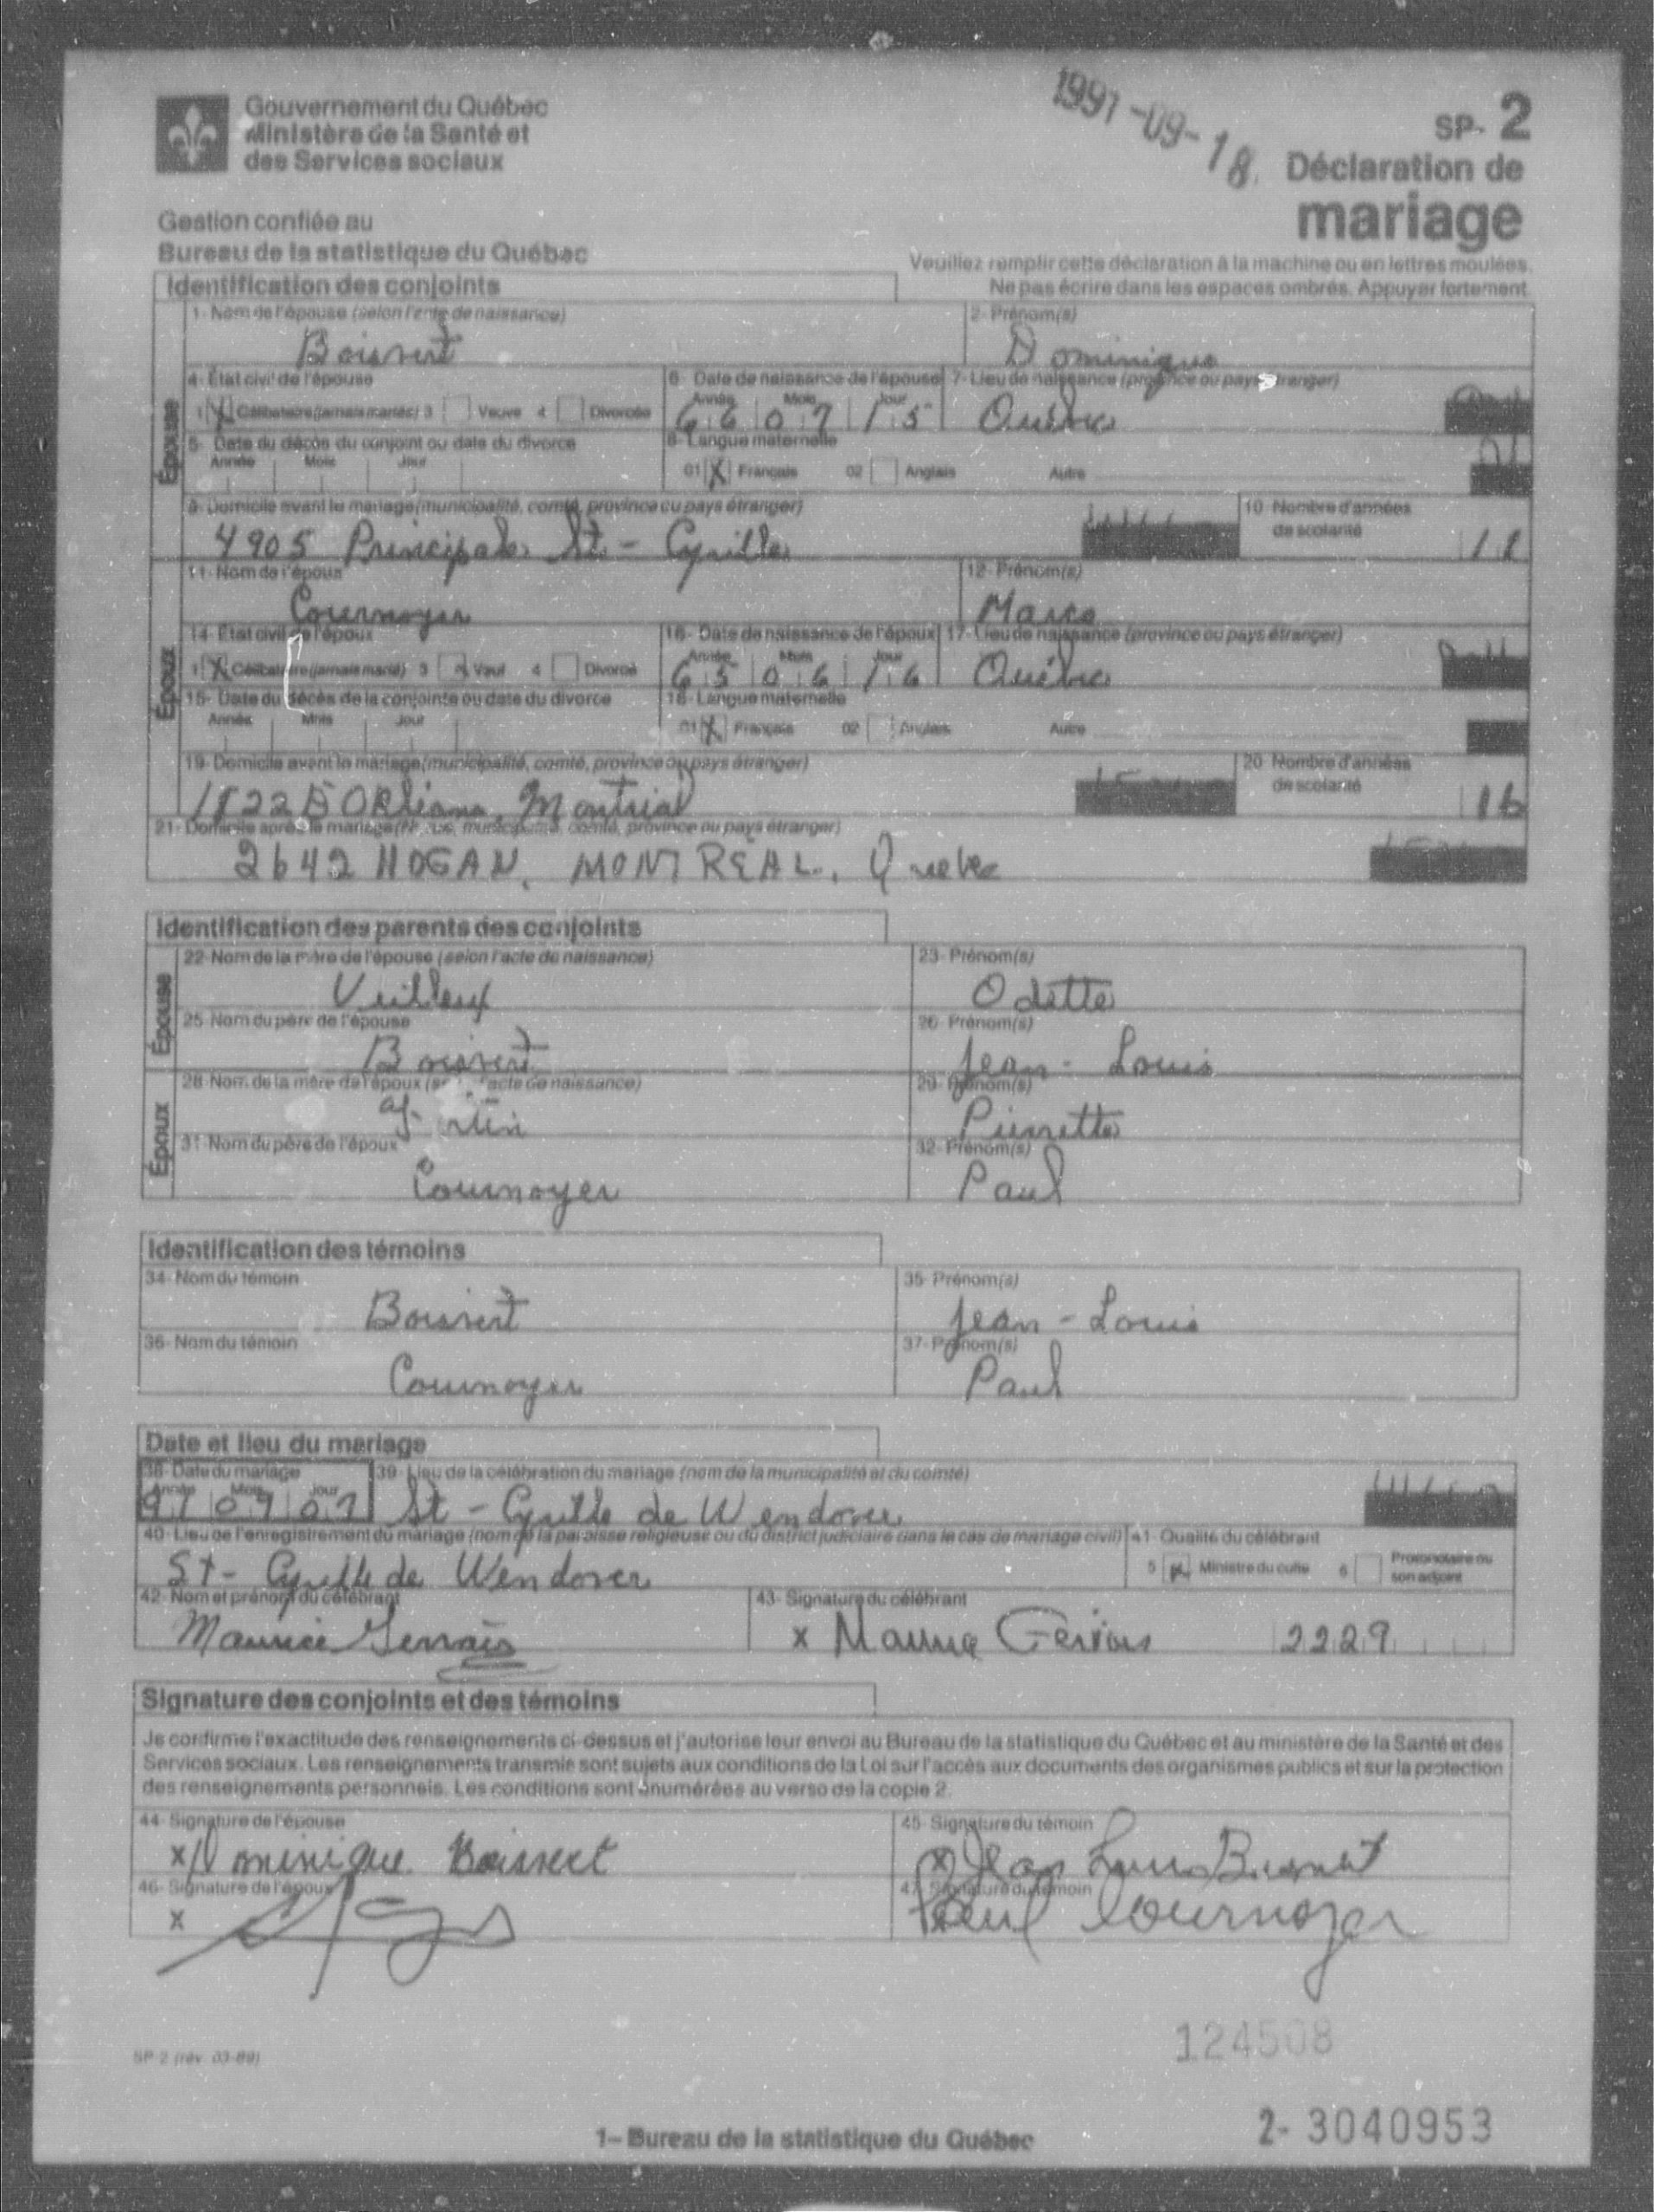 Gouvernement du Québec
Ministère de la Santé et
des Services sociaux
1991-09-18.
SP- 2
Déclaration de
mariage
Gestion confiée au
Bureau de la statistique du Québec
Veuillez remplir cette déclaration à la machine ou en lettres moulées.
Ne pas écrire dans les espaces ombrés. Appuyer fortement.
Identification des conjoints
Épouse
1- Nom de l'épouse (selon l'acte de naissance) 2- Prénom(s)
Boisvert Dominique
4- État civil de l'épouse 6- Date de naissance de l'épouse 7- Lieu de naissance (province ou pays étranger)
Année Mois Jour
1 X Célibataire (jamais mariée) 3 Veuve 4 Divorcée 66 07 15 Québec
5- Date du décès du conjoint ou date du divorce 8- Langue maternelle
Année Mois Jour
01 X Français 02 Anglais Autre
9- Domicile avant le mariage (municipalité, comté, province ou pays étranger) 10- Nombre d'années de scolarité
4905 Principale St-Cyrille
Époux
11- Nom de l'époux 12- Prénom(s)
Cournoyer Marco
14- État civil de l'époux 16- Date de naissance de l'époux 17- Lieu de naissance (province ou pays étranger)
Année Mois Jour
1 X Célibataire (jamais marié) 3 Veuf 4 Divorcé 65 06 16 Québec
15- Date du décès de la conjointe ou date du divorce 18- Langue maternelle
Année Mois Jour
01 X Français 02 Anglais Autre
19- Domicile avant le mariage (municipalité, comté, province ou pays étranger) 20- Nombre d'années de scolarité
D'Orléans, Montréal 16
21- Domicile après le mariage (No, rue, municipalité, comté, province ou pays étranger)
2642 HOGAN, MONTRÉAL, Québec
Identification des parents des conjoints
Épouse
22- Nom de la mère de l'épouse (selon l'acte de naissance) 23- Prénom(s)
Veilleux Odette
25- Nom du père de l'épouse 26- Prénom(s)
Boisvert Jean-Louis
Époux
28- Nom de la mère de l'époux (acte de naissance) 29- Prénom(s)
Pierrette
31- Nom du père de l'époux 32- Prénom(s)
Cournoyer Paul
Identification des témoins
34- Nom du témoin 35- Prénom(s)
Boisvert Jean-Louis
36- Nom du témoin 37- Prénom(s)
Cournoyer Paul
Date et lieu du mariage
38- Date du mariage 39- Lieu de la célébration du mariage (nom de la municipalité et du comté)
Année Mois Jour
91 09 07 St-Cyrille de Wendover
40- Lieu de l'enregistrement du mariage (nom de la paroisse religieuse ou du district judiciaire dans le cas de mariage civil) 41- Qualité du célébrant
5 X Ministre du culte 6 Protonotaire ou son adjoint
St-Cyrille de Wendover
42- Nom et prénom du célébrant 43- Signature du célébrant
Maurice Gervais x Maurice Gervais 2229
Signature des conjoints et des témoins
Je confirme l'exactitude des renseignements ci-dessus et j'autorise leur envoi au Bureau de la statistique du Québec et au ministère de la Santé et des
Services sociaux. Les renseignements transmis sont sujets aux conditions de la Loi sur l'accès aux documents des organismes publics et sur la protection
des renseignements personnels. Les conditions sont énumérées au verso de la copie 2.
44- Signature de l'épouse 45- Signature du témoin
x Dominique Boisvert x Jean Louis Boisvert
46- Signature de l'époux 47- Signature du témoin
x Paul Cournoyer
124508
SP-2 (rév. 03-89)
1- Bureau de la statistique du Québec
2- 3040953